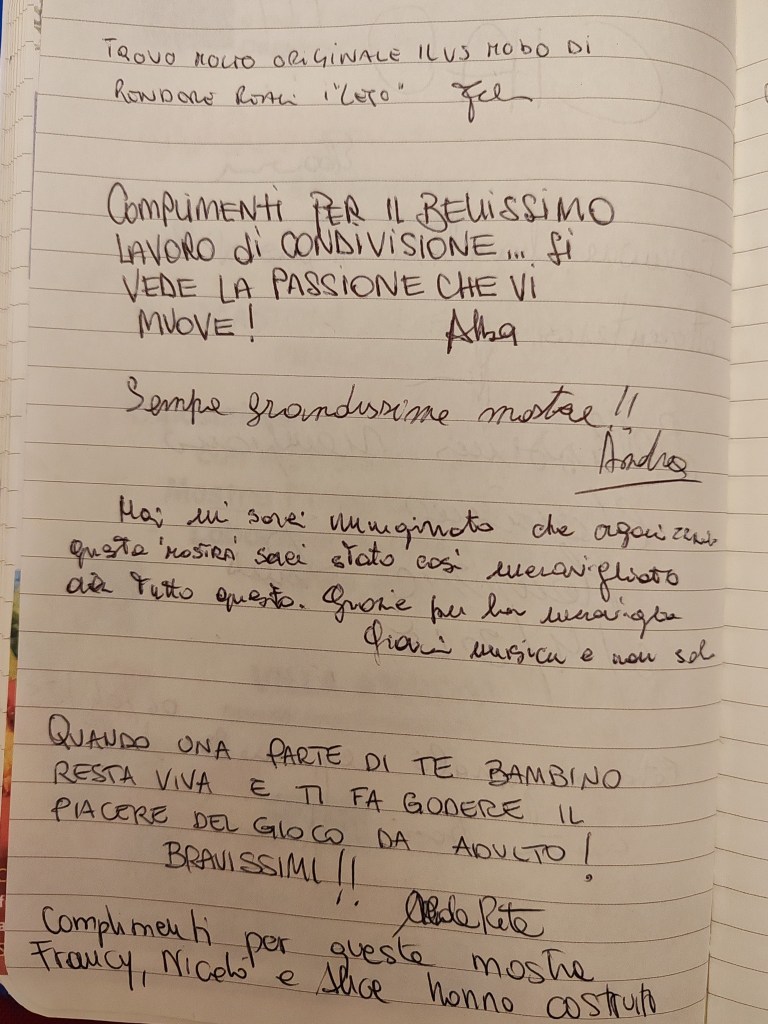 TROVO MOLTO ORIGINALE IL VS MODO DI
RENDERE REALI I "LEGO"
COMPLIMENTI PER IL BELLISSIMO
LAVORO di CONDIVISIONE... SI
VEDE LA PASSIONE CHE VI
MUOVE! Alba
Sempre grandissime mostre!!
Andrea
Mai mi sarei immaginato che
questa "MOSTRA" sarei stato così meravigliato
da tutto questo. Grazie per la meraviglia
musica e non sol
QUANDO UNA PARTE DI TE BAMBINO
RESTA VIVA E TI FA GODERE IL
PIACERE DEL GIOCO DA ADULTO!
BRAVISSIMI!!
Rita
Complimenti per questa mostra
Francy, Nicolò e Alice hanno costruito